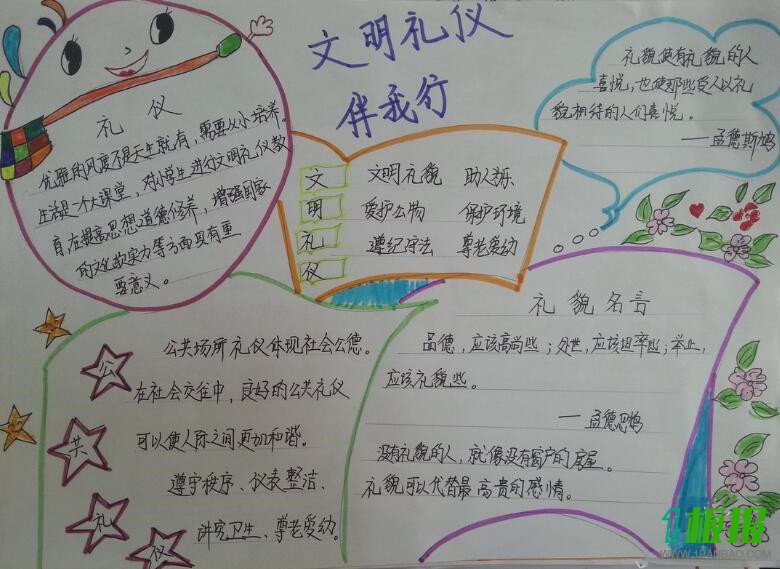 文明礼仪
伴我行
礼仪
优雅的风度不是天生就有，需要从小培养。
生活是一个大课堂，对小学生进行文明礼仪教
育，在提高思想道德修养，增强国家
的文化软实力等方面具有重
要意义。
文 文明礼貌 助人为乐
明 爱护公物 保护环境
礼 遵纪守法 尊老爱幼
仪
礼貌使有礼貌的人
喜悦，也使那些受人以礼
貌相待的人们喜悦。
——孟德斯鸠
公共礼仪
公共场所礼仪体现社会公德。
在社会交往中，良好的公共礼仪
可以使人际之间更加和谐。
遵守秩序、仪表整洁、
讲究卫生、尊老爱幼。
礼貌名言
品德，应该高尚些；处世，应该坦率些；举止，
应该礼貌些。
——孟德斯鸠
没有礼貌的人，就像没有窗户的房屋。
礼貌可以代替最高贵的感情。
板报
WWW.1BANBAO.COM